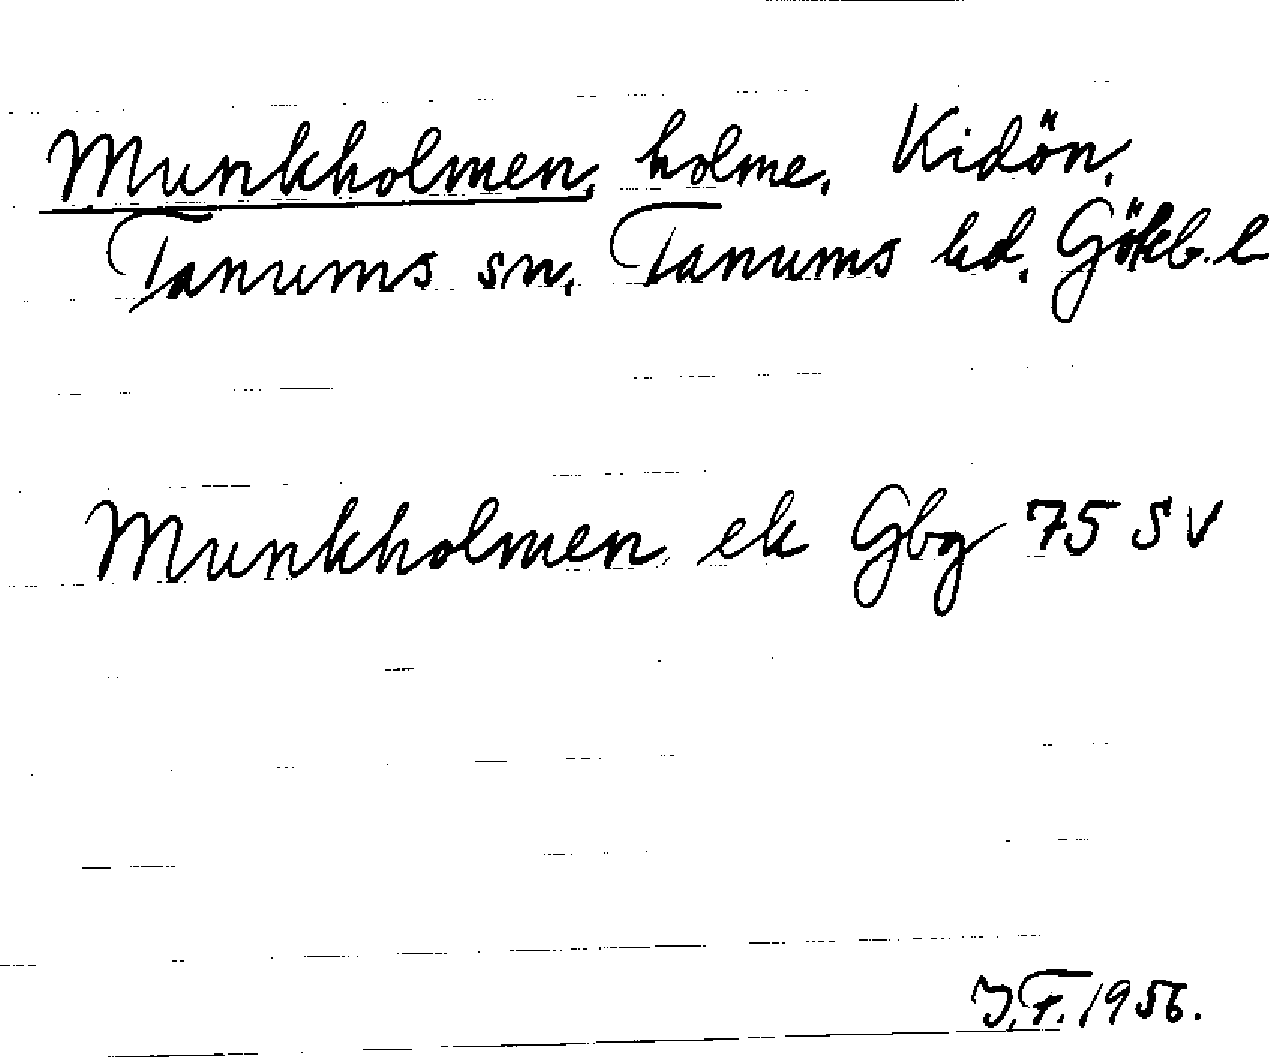 Munkholmen, holme, Kidön,
Tanums sn, Tanums hd, Gökb. l
Munkholmen ek Gbg 75 SV
J.F. 1956.